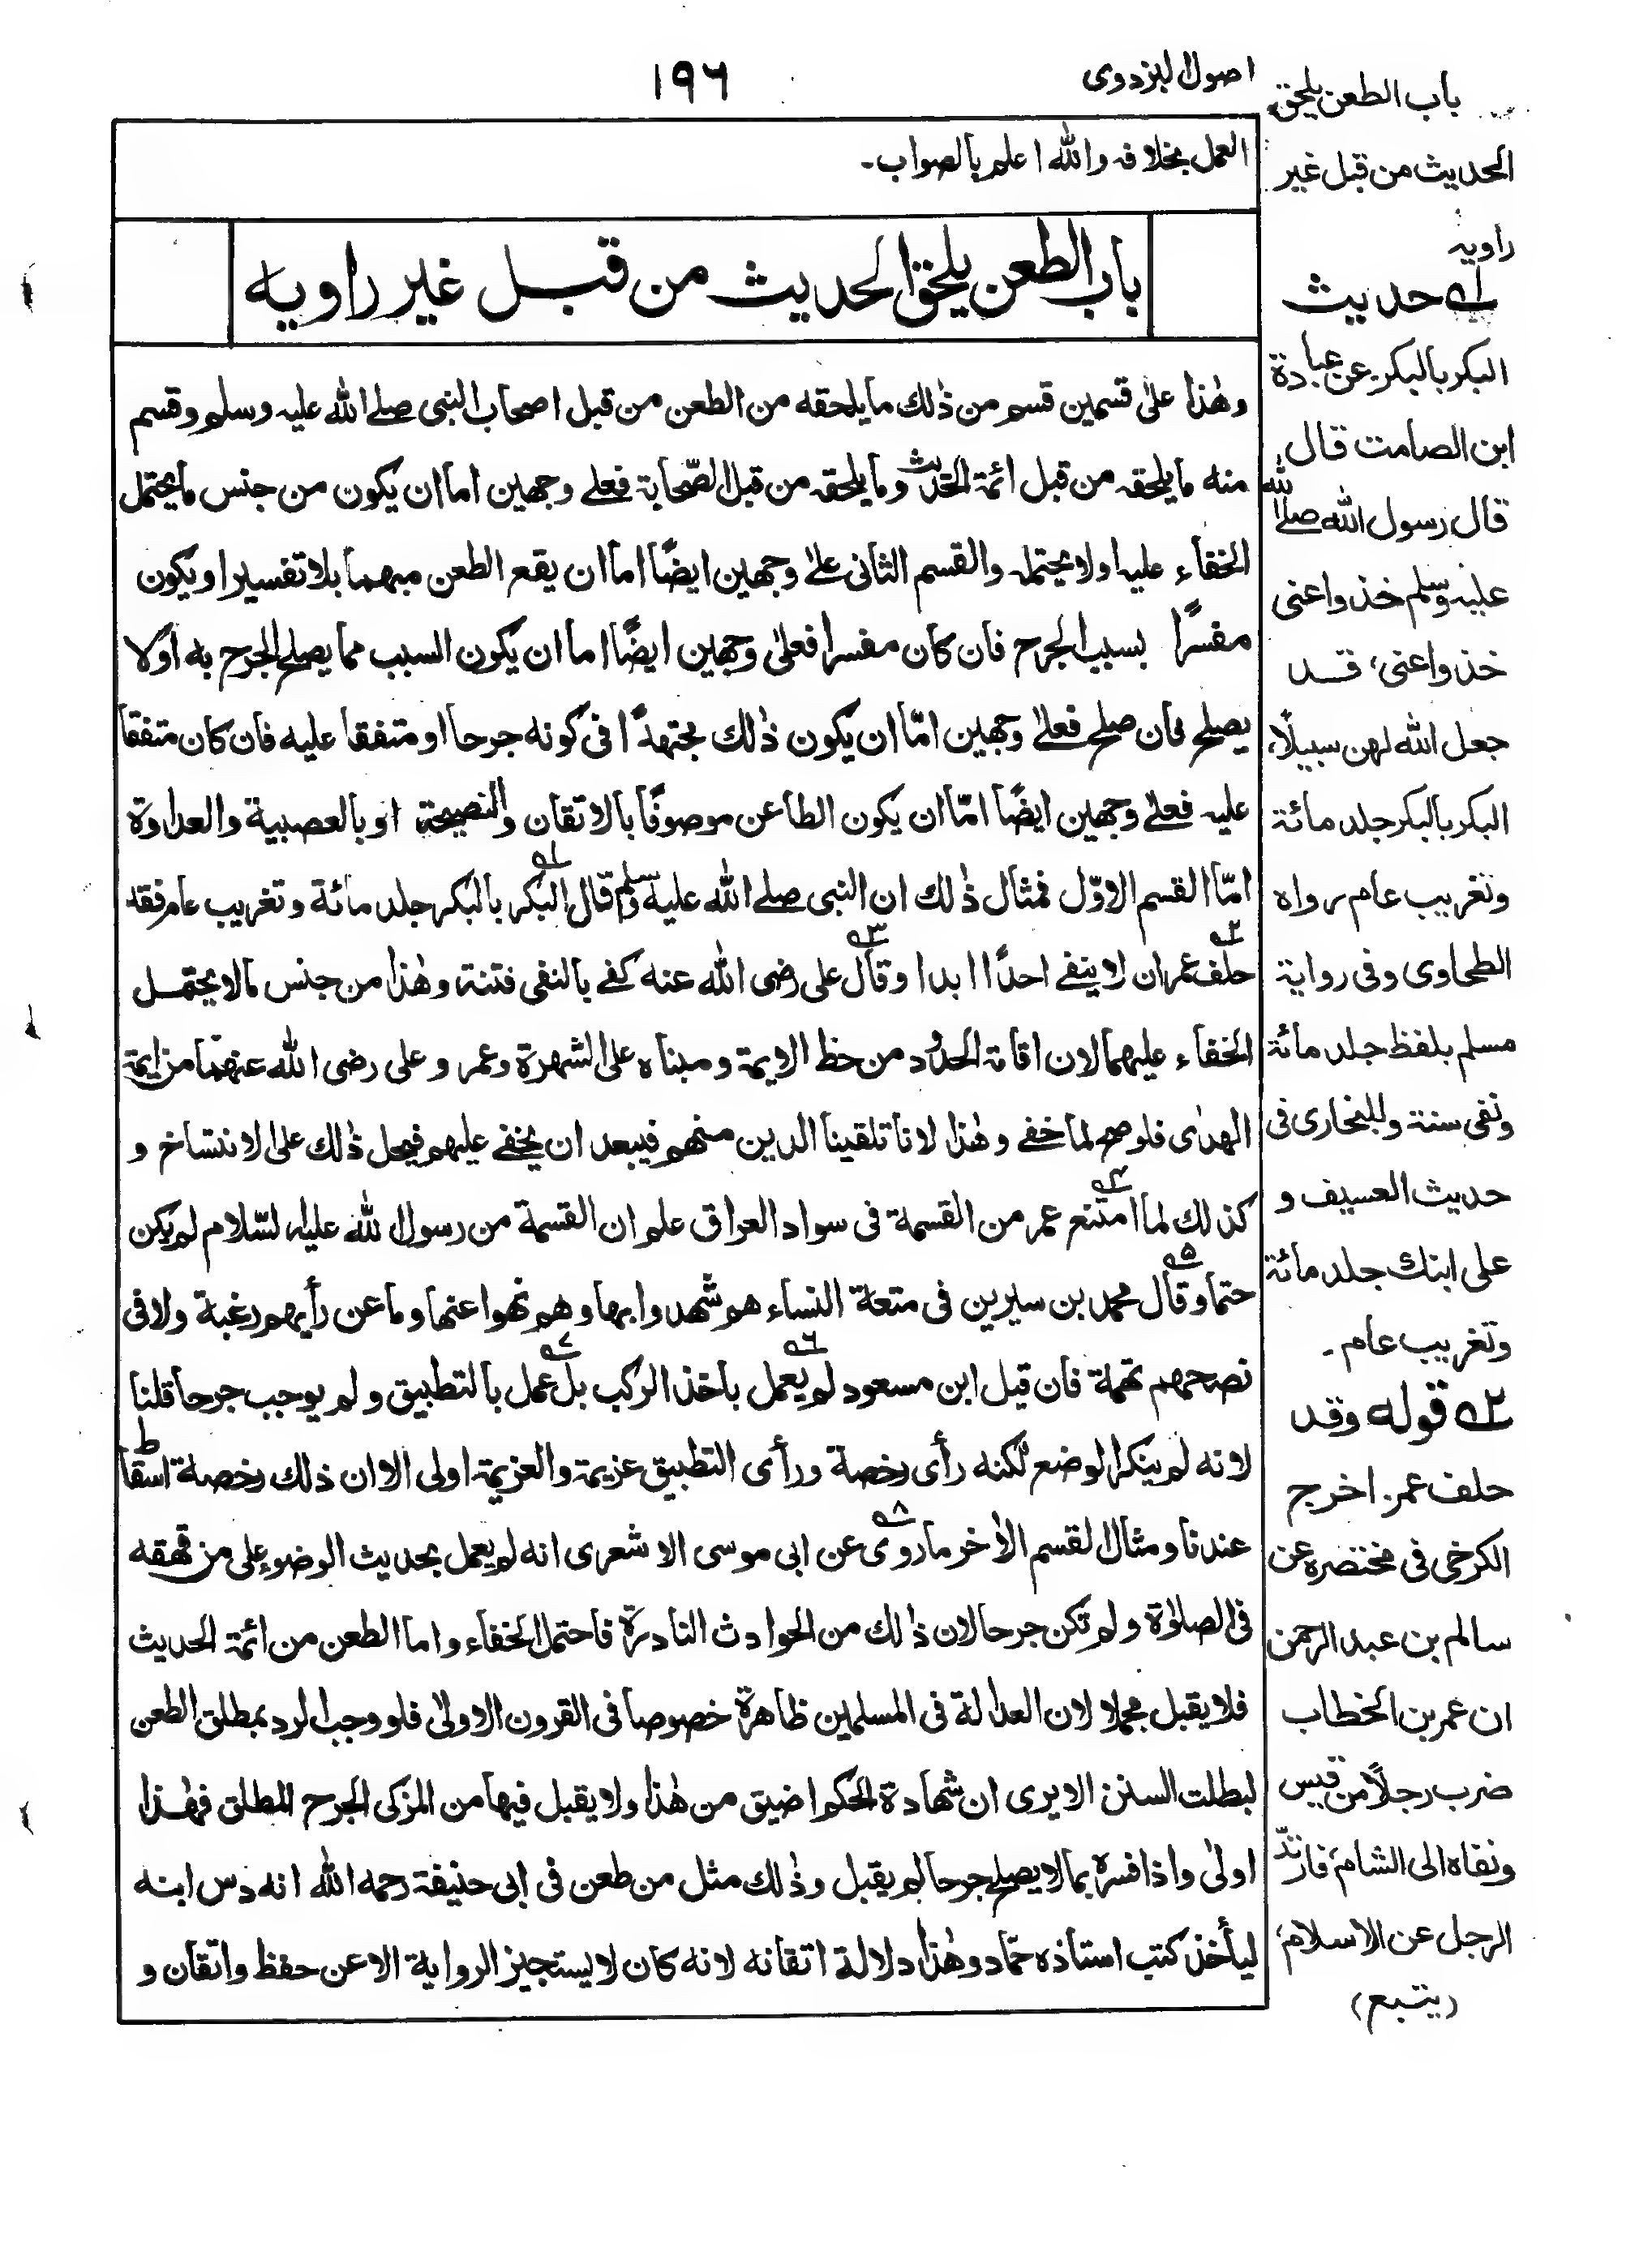 اصول البزدوى
١٩٦
العمل بخلافه والله اعلم بالصواب۔
باب الطعن يلحق الحديث من قبل غير راويه
وهٰذا علىٰ قسمين قسم من ذٰلك ما يلحقه من الطعن من قبل اصحاب النبى صلے الله عليه وسلم وقسم
منه ما يلحقه من قبل ائمة الحديث وما يلحقه من قبل الصّحابة فعلے وجهين اما ان يكون من جنس ما يحتمل
الخفاء عليه اولا يحتمله والقسم الثانى علے وجهين ايضًا اما ان يقع الطعن مبهما بلا تفسير او يكون
مفسرًا بسبب الجرح فان كان مفسرا فعلىٰ وجهين ايضًا اما ان يكون السبب مما يصلح الجرح به اولا
يصلح فان صلح فعلےٰ وجهين امّا ان يكون ذٰلك مجتهدًا فى كونه جرحا او متفقا عليه فان كان متفقا
عليه فعلے وجهين ايضًا امّا ان يكون الطاعن موصوفًا بالاتقان والنصيحة او بالعصبية والعداوة
امّا القسم الاوّل فمثال ذٰلك ان النبى صلے الله عليه وسلم قال البكر بالبكر جلد مائة وتغريب عام فقد
حلف عمر ان لا ينفے احدًا ابدا وقال على رضى الله عنه كفے بالنفى فتنة وهٰذا من جنس مالا يحتمل
الخفاء عليهما لان اقامة الحدود من حظ الايمة ومبناه على الشهرة وعمر وعلى رضى الله عنهما من ايمة
الهدٰى فلو صح لما خفے وهٰذا لانا تلقينا الدين منهم فيبعد ان يخفے عليهم فيحمل ذٰلك على الانتساخ و
كذلك لما امتنع عمر من القسمة فى سواد العراق علم ان القسمة من رسول الله عليه السّلام لم يكن
حتما وقال محمد بن سيرين فى متعة النساء هم شهدوا بها وهم نهوا عنها وما عن رأيهم رغبة ولا فى
نصحهم تهمة فان قيل ابن مسعود لم يعمل باخذ الركب بل عمل بالتطبيق و لم يوجب جرحا قلنا
لانه لم ينكر الوضع لٰكنه رأى رخصة ورأى التطبيق عزيمة والعزيمة اولى الا ان ذلك رخصة اسقاط
عندنا ومثال القسم الاٰخر ماروى عن ابى موسى الاشعرى انه لم يعمل بحديث الوضوء على من قهقه
فى الصلاٰوة و لم تكن جرحا لان ذالك من الحوادث النادرة فاحتمل الخفاء واما الطعن من ائمة الحديث
فلا يقبل مجملا لان العدالة فى المسلمين ظاهرة خصوصا فى القرون الاولىٰ فلو وجب الرد بمطلق الطعن
لبطلت السنن الا يرى ان شهادة الحكم اضيق من هٰذا ولا يقبل فيها من المزكى الجرح المطلق فهٰذا
اولىٰ واذا فسره بما لا يصلح جرحا لم يقبل وذٰلك مثل من طعن فى ابى حنيفة رحمه الله انه دس ابنه
ليأخذ كتب استاذه حمّاد وهٰذا دلالة اتقانه لانه كان لا يستجيز الرواية الا عن حفظ واتقان و
باب الطعن يلحق
الحديث من قبل غير
راويه
١ے حديث
البكر بالبكر عن عبادة
ابن الصامت قال
قال رسول الله صلے الله
عليه وسلم خذوا عنى
خذوا عنى، قد
جعل الله لهن سبيلًا،
البكر بالبكر جلد مائة
وتغريب عام رواه
الطحاوى وفى رواية
مسلم بلفظ جلد مائة
ونفى سنة وللبخارى فى
حديث العسيف و
على ابنك جلد مائة
وتغريب عام۔
٢ے قوله وقد
حلف عمر، اخرج
الكرخى فى مختصره عن
سالم بن عبد الرحمن
ان عمر بن الخطاب
ضرب رجلًا من قيس
ونفاه الى الشام، فارتدّ
الرجل عن الاسلام،
(يتبع)